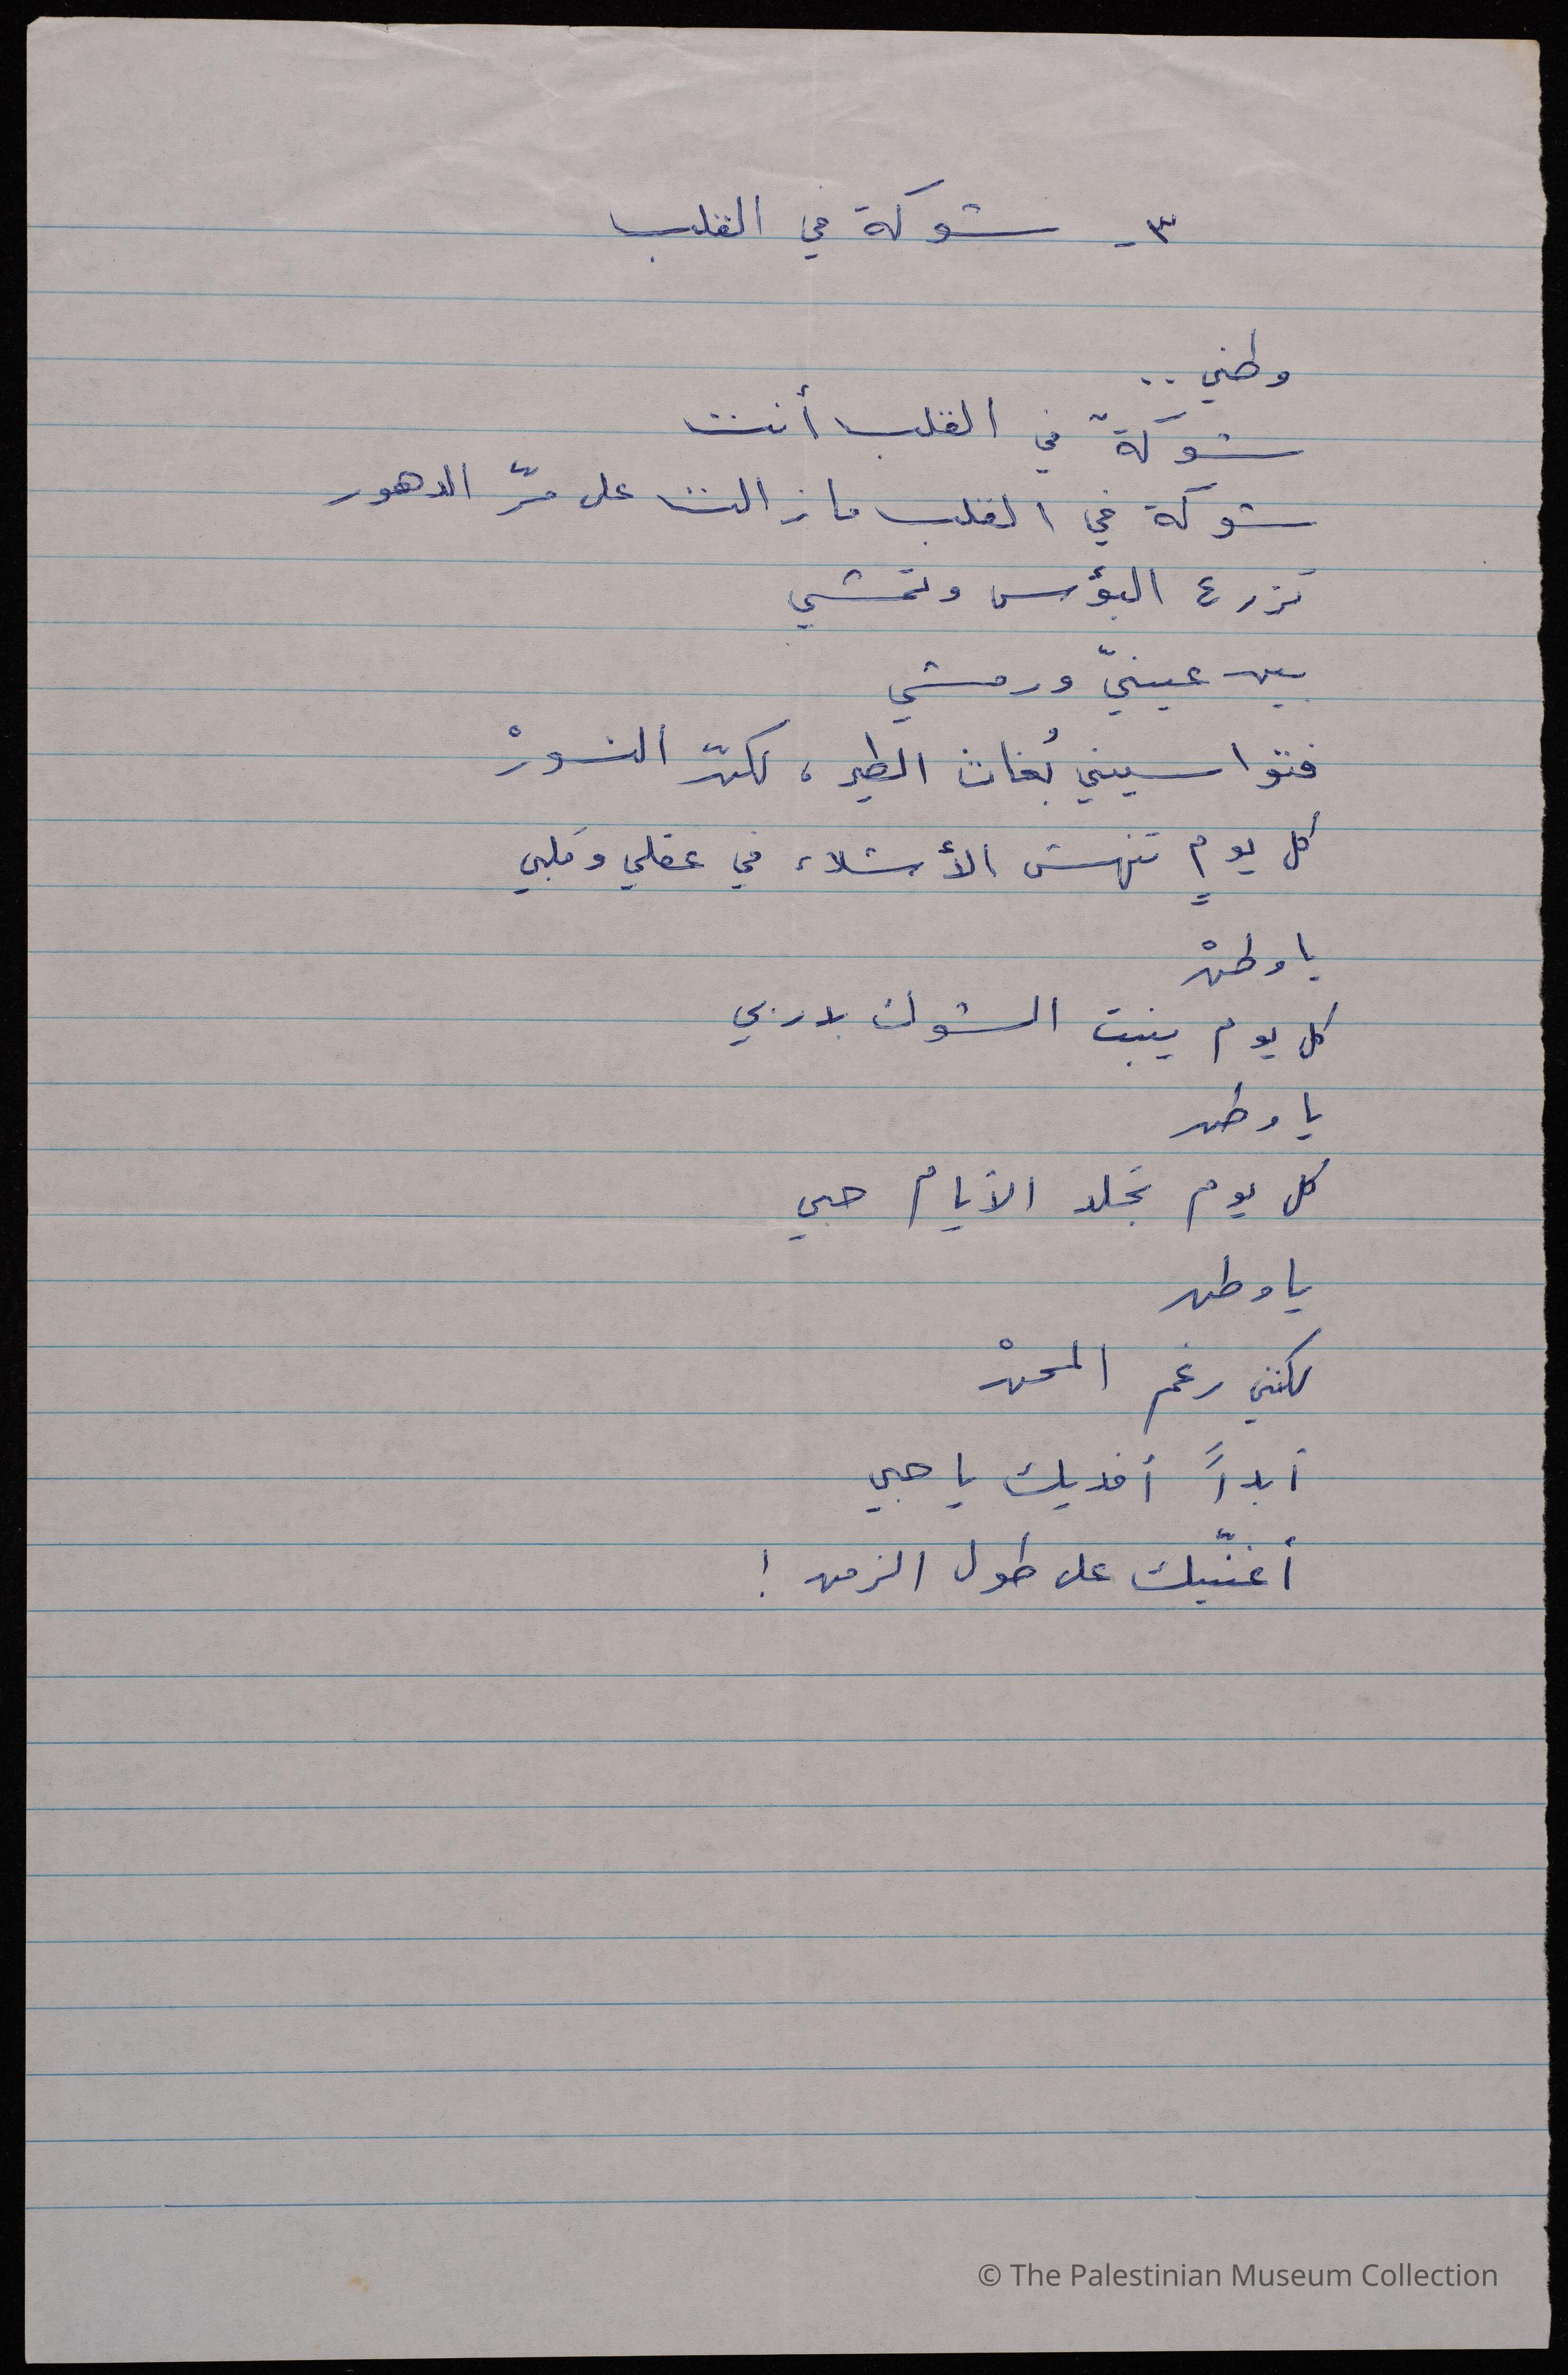 ٣- شوكة في القلب
وطني ..
شوكةٌ في القلب أنت
شوكة في القلب مازالت على مرّ الدهور
تزرع البؤس وتمشي
بين عينيّ ورمشي
فتواسيني بُغاث الطير، لكنّ النسورْ
كل يومٍ تنهش الأشلاء في عقلي وقلبي
يا وطنْ
كل يوم ينبت الشوك بدربي
يا وطن
كل يوم تجلد الأيام حبي
يا وطن
لكنني رغم المحنْ
أبداً أفديك يا حبي
أغنّيك على طول الزمن !
© The Palestinian Museum Collection